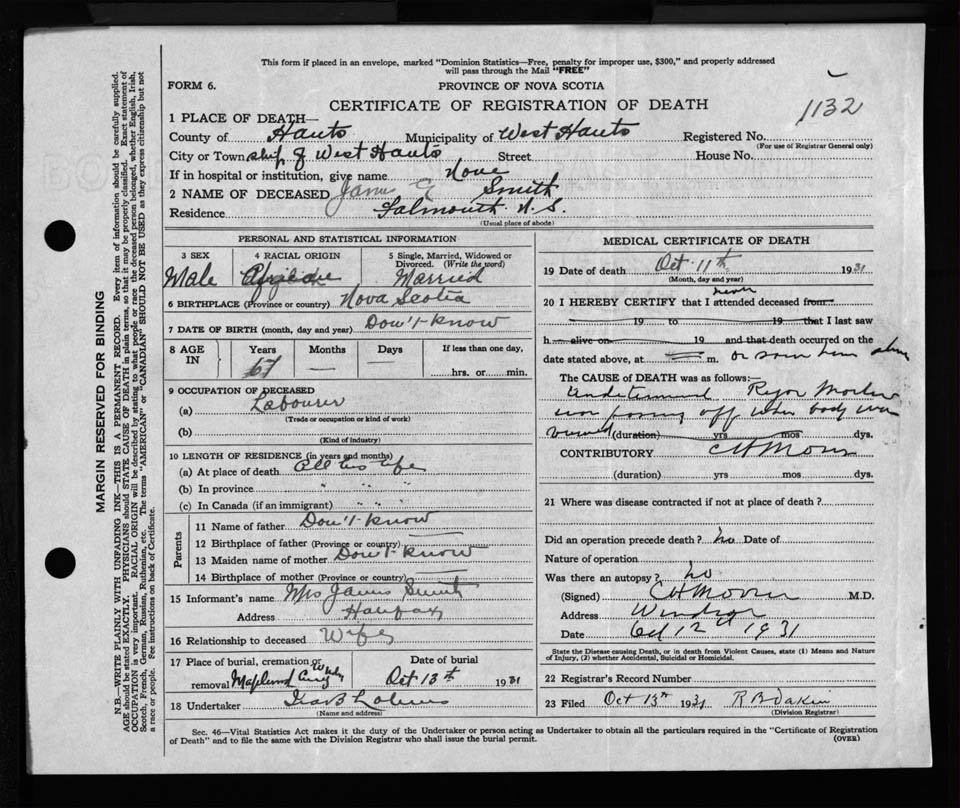 This form if placed in an envelope, marked "Dominion Statistics—Free, penalty for improper use, $300," and properly addressed
will pass through the Mail "FREE"
FORM 6.
PROVINCE OF NOVA SCOTIA
CERTIFICATE OF REGISTRATION OF DEATH
1132
1 PLACE OF DEATH—
County of Hants Municipality of West Hants Registered No.
(For use of Registrar General only)
City or Town ship of West Hants Street House No.
If in hospital or institution, give name None
2 NAME OF DECEASED James Smith
Residence Falmouth N.S.
(Usual place of abode)
PERSONAL AND STATISTICAL INFORMATION
3 SEX 4 RACIAL ORIGIN 5 Single, Married, Widowed or
Divorced. (Write the word)
Male Married
6 BIRTHPLACE (Province or country) Nova Scotia
7 DATE OF BIRTH (month, day and year) Don't know
8 AGE IN Years Months Days If less than one day,
67 — — hrs. or min.
9 OCCUPATION OF DECEASED
(a) Labourer
(Trade or occupation or kind of work)
(b)
(Kind of industry)
10 LENGTH OF RESIDENCE (in years and months)
(a) At place of death All his life
(b) In province " " "
(c) In Canada (if an immigrant) " " "
Parents
11 Name of father Don't know
12 Birthplace of father (Province or country) —
13 Maiden name of mother Don't know
14 Birthplace of mother (Province or country) —
15 Informant's name Mrs James Smith
Address Hantsport
16 Relationship to deceased Wife
17 Place of burial, cremation or Date of burial
removal Maplewood Oct 13th 1931
18 Undertaker
(Name and address)
MEDICAL CERTIFICATE OF DEATH
19 Date of death Oct 11th 1931
(Month, day and year)
20 I HEREBY CERTIFY that I never attended deceased from
19 to 19 that I last saw
h alive on 19 and that death occurred on the
date stated above, at m. or seen him alive
The CAUSE of DEATH was as follows:
Undetermined Rigor Mortis
was passing off when body was
(duration) yrs mos dys.
CONTRIBUTORY
(duration) yrs mos dys.
21 Where was disease contracted if not at place of death?
Did an operation precede death? no Date of
Nature of operation
Was there an autopsy? no
(Signed) M.D.
Address Windsor
Date Oct 12 1931
State the Disease causing Death, or in death from Violent Causes, state (1) Means and Nature
of Injury, (2) whether Accidental, Suicidal or Homicidal.
22 Registrar's Record Number
23 Filed Oct 13th 1931
(Division Registrar)
Sec. 46—Vital Statistics Act makes it the duty of the Undertaker or person acting as Undertaker to obtain all the particulars required in the "Certificate of Registration
of Death" and to file the same with the Division Registrar who shall issue the burial permit.
(OVER)
MARGIN RESERVED FOR BINDING
N.B.—WRITE PLAINLY WITH UNFADING INK—THIS IS A PERMANENT RECORD. Every item of information should be carefully supplied.
AGE should be stated EXACTLY. PHYSICIANS should STATE CAUSE OF DEATH in plain terms, so that it may be properly classified. Exact statement of
OCCUPATION is very important. RACIAL ORIGIN will be described by stating to what people or race the deceased person belonged, whether English, Irish,
Scotch, French, German, Russian, Ruthenian, etc. The terms "AMERICAN" or "CANADIAN" SHOULD NOT BE USED as they express citizenship but not
a race or people. See instructions on back of Certificate.